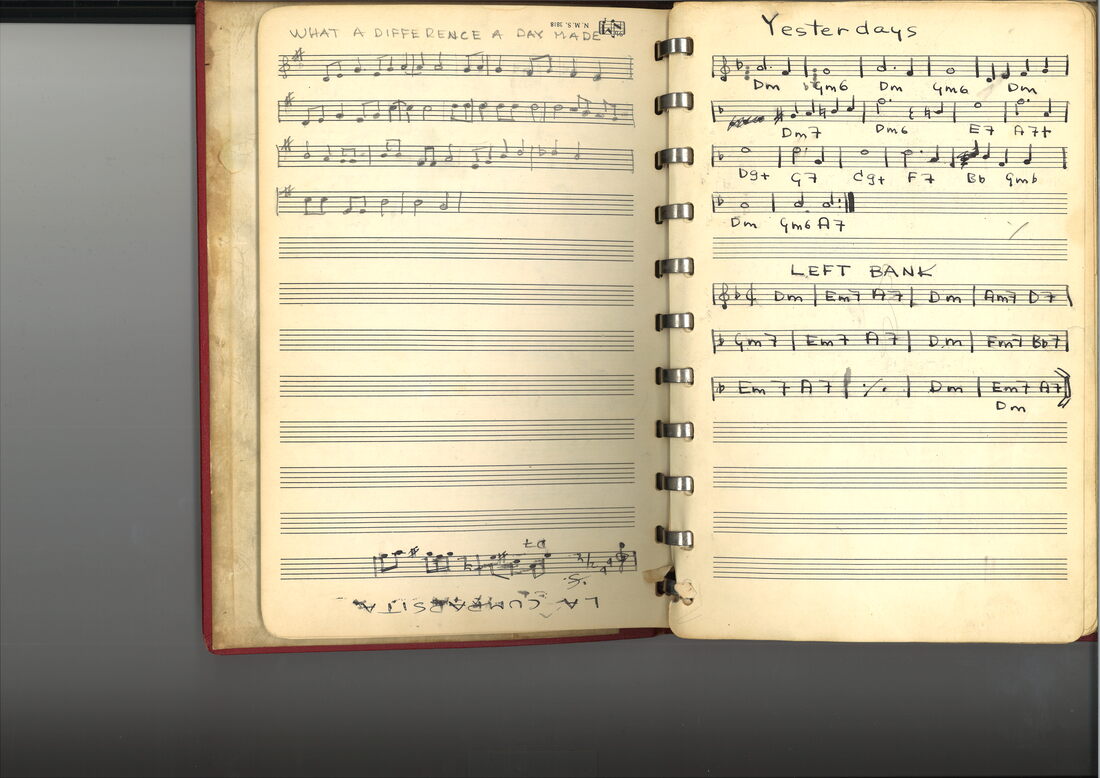 WHAT A DIFFERENCE A DAY MADE
N.M.S. 3818
D7
LA CUMPARSITA
Yesterdays
Dm Gm6 Dm Gm6 Dm
Dm7 Dm6 E7 A7+
D9+ G7 C9+ F7 Bb Gm6
Dm Gm6 A7
LEFT BANK
Dm Em7 A7 Dm Am7 D7
Gm7 Em7 A7 Dm Fm7 Bb7
Em7 A7 Dm Em7 A7
Dm